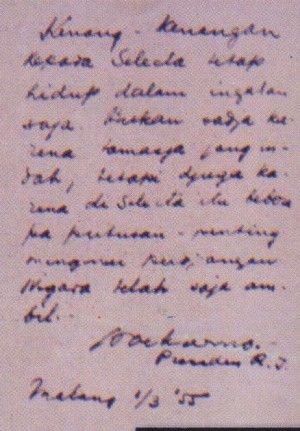 Kenang-kenangan
kepada Selecta tetap
hidup dalam ingatan
saja. Bukan sadja ka-
rena tamasja jang in-
dah, tetapi djuga ka-
rena di Selecta itu bebera
pa putusan-penting
mengenai perdjoangan
Negara telah saja am-
bil.-
Soekarno.-
Presiden R.I.
Malang 1/3 '55